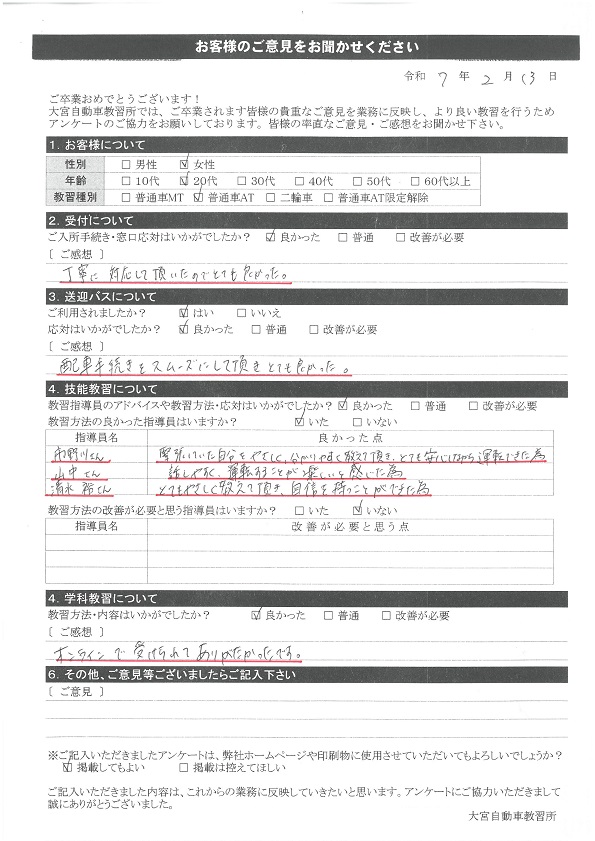 お客様のご意見をお聞かせください
令和 7 年 2 月 13 日
ご卒業おめでとうございます！
大宮自動車教習所では、ご卒業されます皆様の貴重なご意見を業務に反映し、より良い教習を行うため
アンケートのご協力をお願いしております。皆様の率直なご意見・ご感想をお聞かせ下さい。
1. お客様について
性別 □ 男性 ☑ 女性
年齢 □ 10代 ☑ 20代 □ 30代 □ 40代 □ 50代 □ 60代以上
教習種別 □ 普通車MT ☑ 普通車AT □ 二輪車 □ 普通車AT限定解除
2. 受付について
ご入所手続き・窓口応対はいかがでしたか？ ☑ 良かった □ 普通 □ 改善が必要
[ ご感想 ]
丁寧に対応して頂いたのでとても良かった。
3. 送迎バスについて
ご利用されましたか？ ☑ はい □ いいえ
応対はいかがでしたか？ ☑ 良かった □ 普通 □ 改善が必要
[ ご感想 ]
配車手続きをスムーズにして頂きとても良かった。
4. 技能教習について
教習指導員のアドバイスや教習方法・応対はいかがでしたか？ ☑ 良かった □ 普通 □ 改善が必要
教習方法の良かった指導員はいますか？ ☑ いた □ いない
指導員名 良かった点
市野川さん 緊張していた自分をやさしく、分かりやすく教えて頂き、とても安心しながら運転できた為
山中さん 話しやすく、運転することが楽しいと感じた為
清水 裕さん とてもやさしく教えて頂き、自信を持つことができた為
教習方法の改善が必要と思う指導員はいますか？ □ いた ☑ いない
指導員名 改善が必要と思う点
4. 学科教習について
教習方法・内容はいかがでしたか？ ☑ 良かった □ 普通 □ 改善が必要
[ ご感想 ]
オンラインで受けられてありがたかったです。
6. その他、ご意見等ございましたらご記入下さい
[ ご意見 ]
※ご記入いただきましたアンケートは、弊社ホームページや印刷物に使用させていただいてもよろしいでしょうか？
☑ 掲載してもよい □ 掲載は控えてほしい
ご記入いただきました内容は、これからの業務に反映していきたいと思います。アンケートにご協力いただきまして
誠にありがとうございました。
大宮自動車教習所